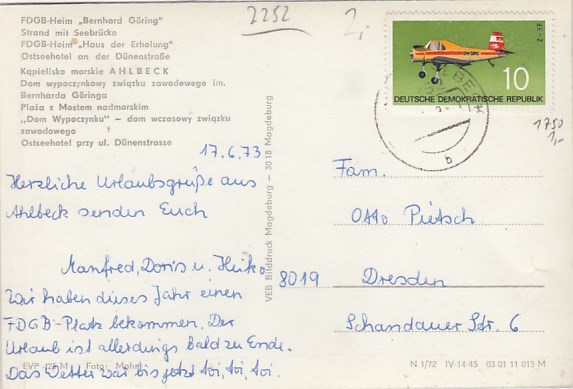 FDGB-Heim „Bernhard Göring"
Strand mit Seebrücke
FDGB-Heim „Haus der Erholung"
Ostseehotel an der Dünenstraße
Kąpielisko morskie AHLBECK
Dom wypoczynkowy związku zawodowego im.
Bernharda Göringa
Plaża z Mostem nadmorskim
„Dom Wypoczynku" – dom wczasowy związku
zawodowego
Ostseehotel przy ul. Dünenstrasse
2252
2,-
10
DEUTSCHE DEMOKRATISCHE REPUBLIK
1750
1,-
b
17.6.73
Herzliche Urlaubsgrüße aus
Ahlbeck senden Euch
Manfred, Doris u. Heiko
Wir haben dieses Jahr einen
FDGB-Platz bekommen. Der
Urlaub ist allerdings bald zu Ende.
Das Wetter war bis jetzt toi, toi, toi.
VEB Bilddruck Magdeburg – 3018 Magdeburg
Fam.
Otto Pietsch
8019 Dresden
Schandauer Str. 6
EVP M Foto: Mohr
N 1/72 IV-14-45 03 01 11 013 M